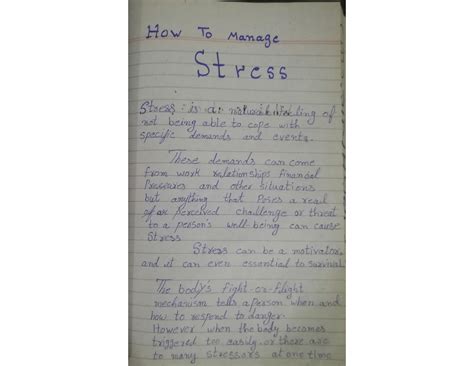 How To Manage
Stress
Stress is a natural feeling of
not being able to cope with
specific demands and events.
These demands can come
from work relationships Financial
Pressures and other situations
but anything that Poses a real
or a Perceived challenge or threat
to a person's well-being can cause
Stress
Stress can be a motivator
and it can even essential to survival
The body's fight-or-flight
mechanism tells a person when and
how to respond to danger.
However when the body becomes
triggered too easily or there are
to many stressors at one time